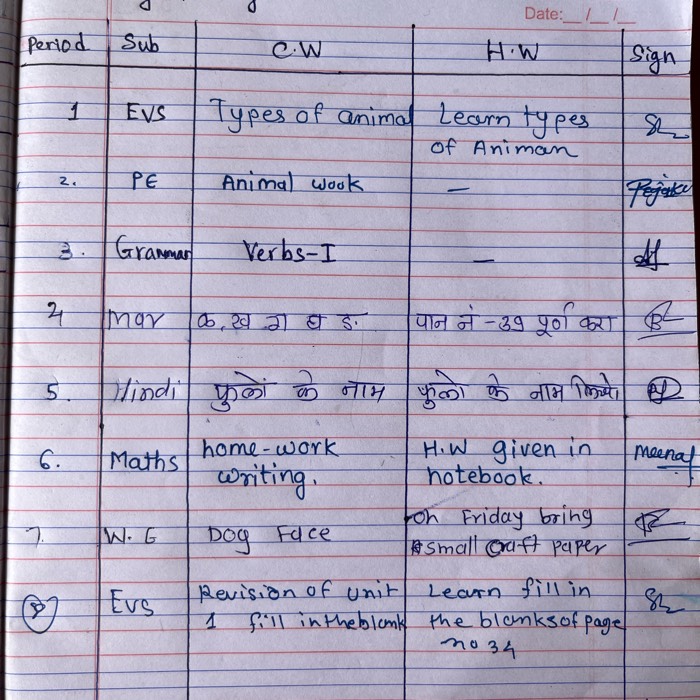 Date: __/__/__
Period Sub C.W H.W Sign
1 EVS Types of animal Learn types
of Animan
2. PE Animal wook —
3. Granmar Verbs-I —
4 mar क, ख ग घ ङ. पान नं - 39 पूर्ण करा
5. Hindi फुलों के नाम फुलो के नाम लिखो
6. Maths home-work H.W given in Meenal
writing. notebook.
7. W.G Dog Face on Friday bring
small craft paper
8 EVS Revision of unit Learn fill in
1 fill in the blank the blanks of page
no 34